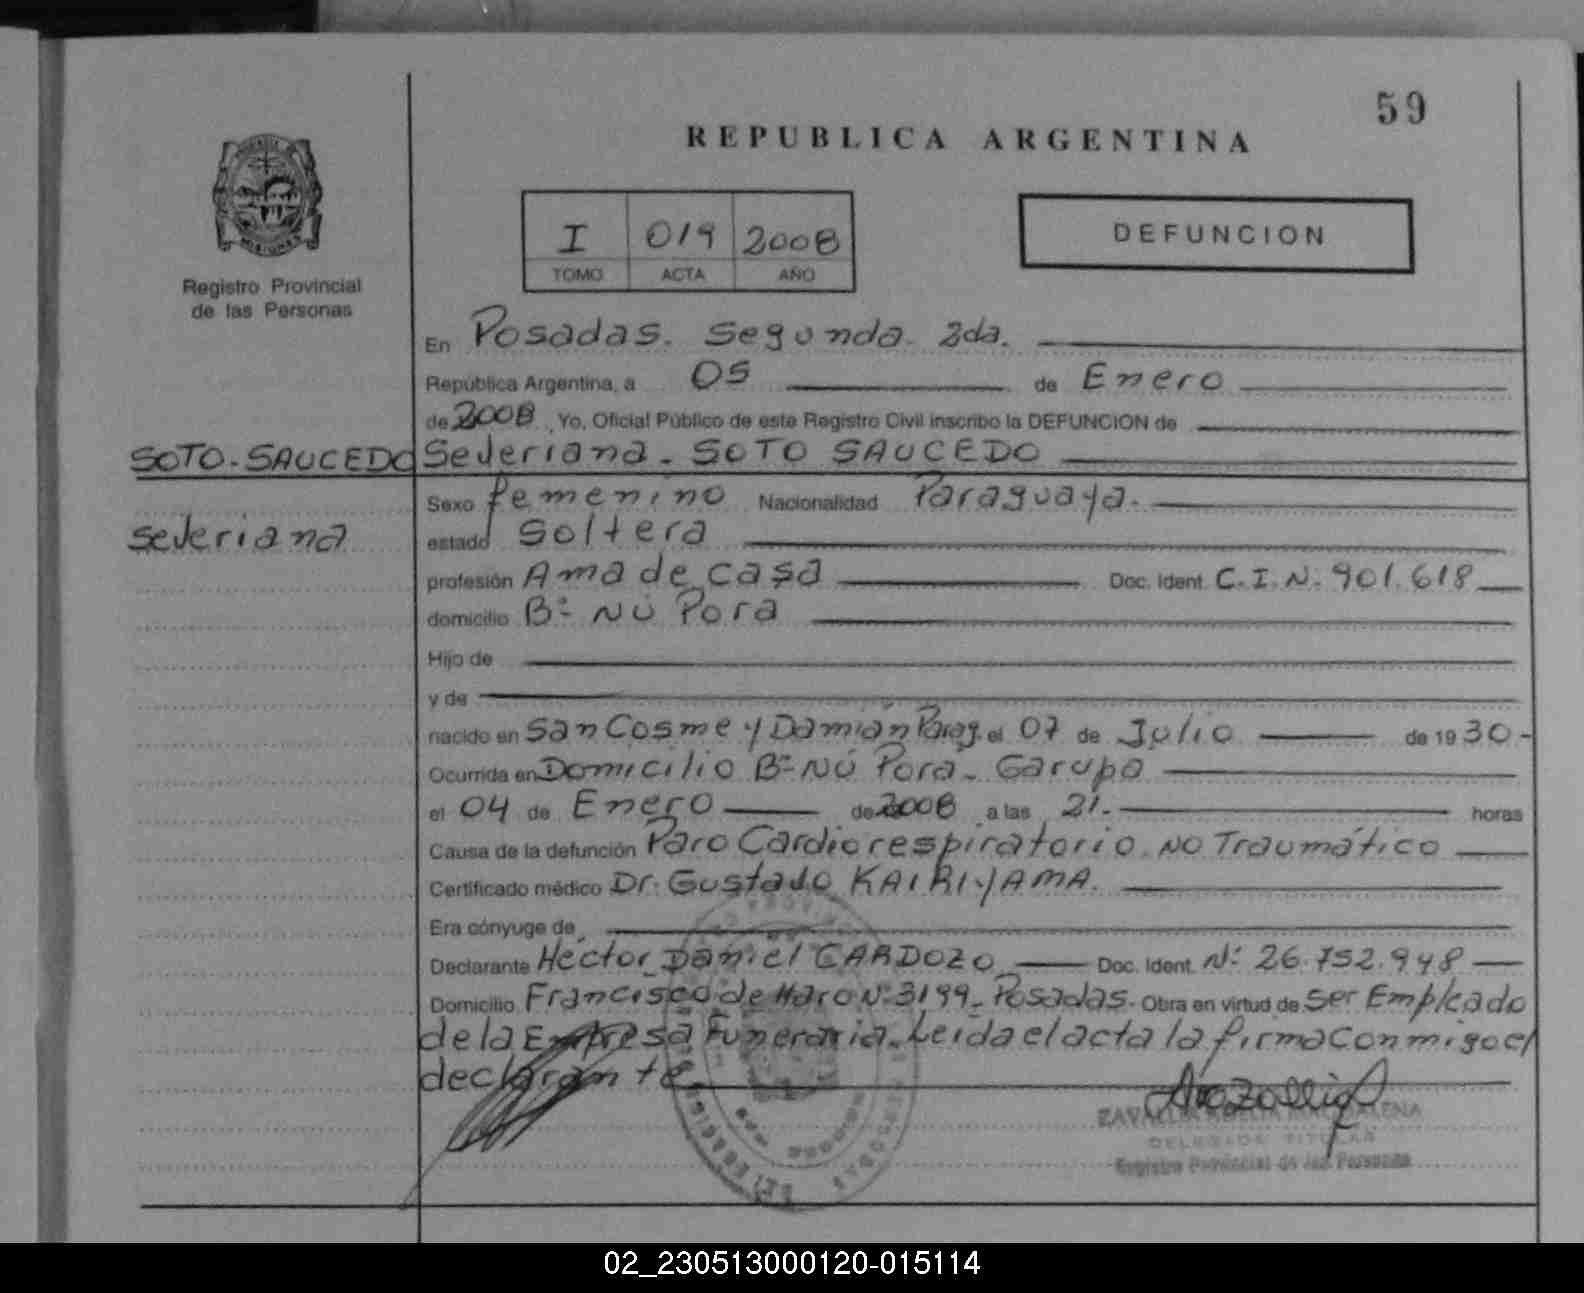 59
REPUBLICA ARGENTINA
I 019 2008
TOMO ACTA AÑO
DEFUNCION
Registro Provincial
de las Personas
En Posadas. Segunda. 2da.
República Argentina, a 05 de Enero
de 2008, Yo, Oficial Público de este Registro Civil inscribo la DEFUNCION de
SOTO-SAUCEDO Severiana. SOTO SAUCEDO
Sexo femenino Nacionalidad Paraguaya.
Severiana
estado Soltera
profesión Ama de casa Doc. Ident. C.I.N: 901.618
domicilio Bº ÑU Porá
Hijo de
y de
nacido en San Cosme y Damián Parag. el 07 de Julio de 1930-
Ocurrida en Domicilio Bº ÑU Porá - Garupá
el 04 de Enero de 2008 a las 21.- horas
Causa de la defunción Paro Cardiorespiratorio NO Traumático
Certificado médico Dr. Gustavo KAIRIYAMA.
Era cónyuge de
Declarante Héctor Daniel CARDOZO Doc. Ident. Nº 26.752.948
Domicilio Francisco de Haro Nº 3199 - Posadas. Obra en virtud de Ser Empleado
de la Empresa Funeraria. Leída el acta la firma conmigo el
declarante
DELEGADA TITULAR
Registro Provincial de las Personas
02_230513000120-015114